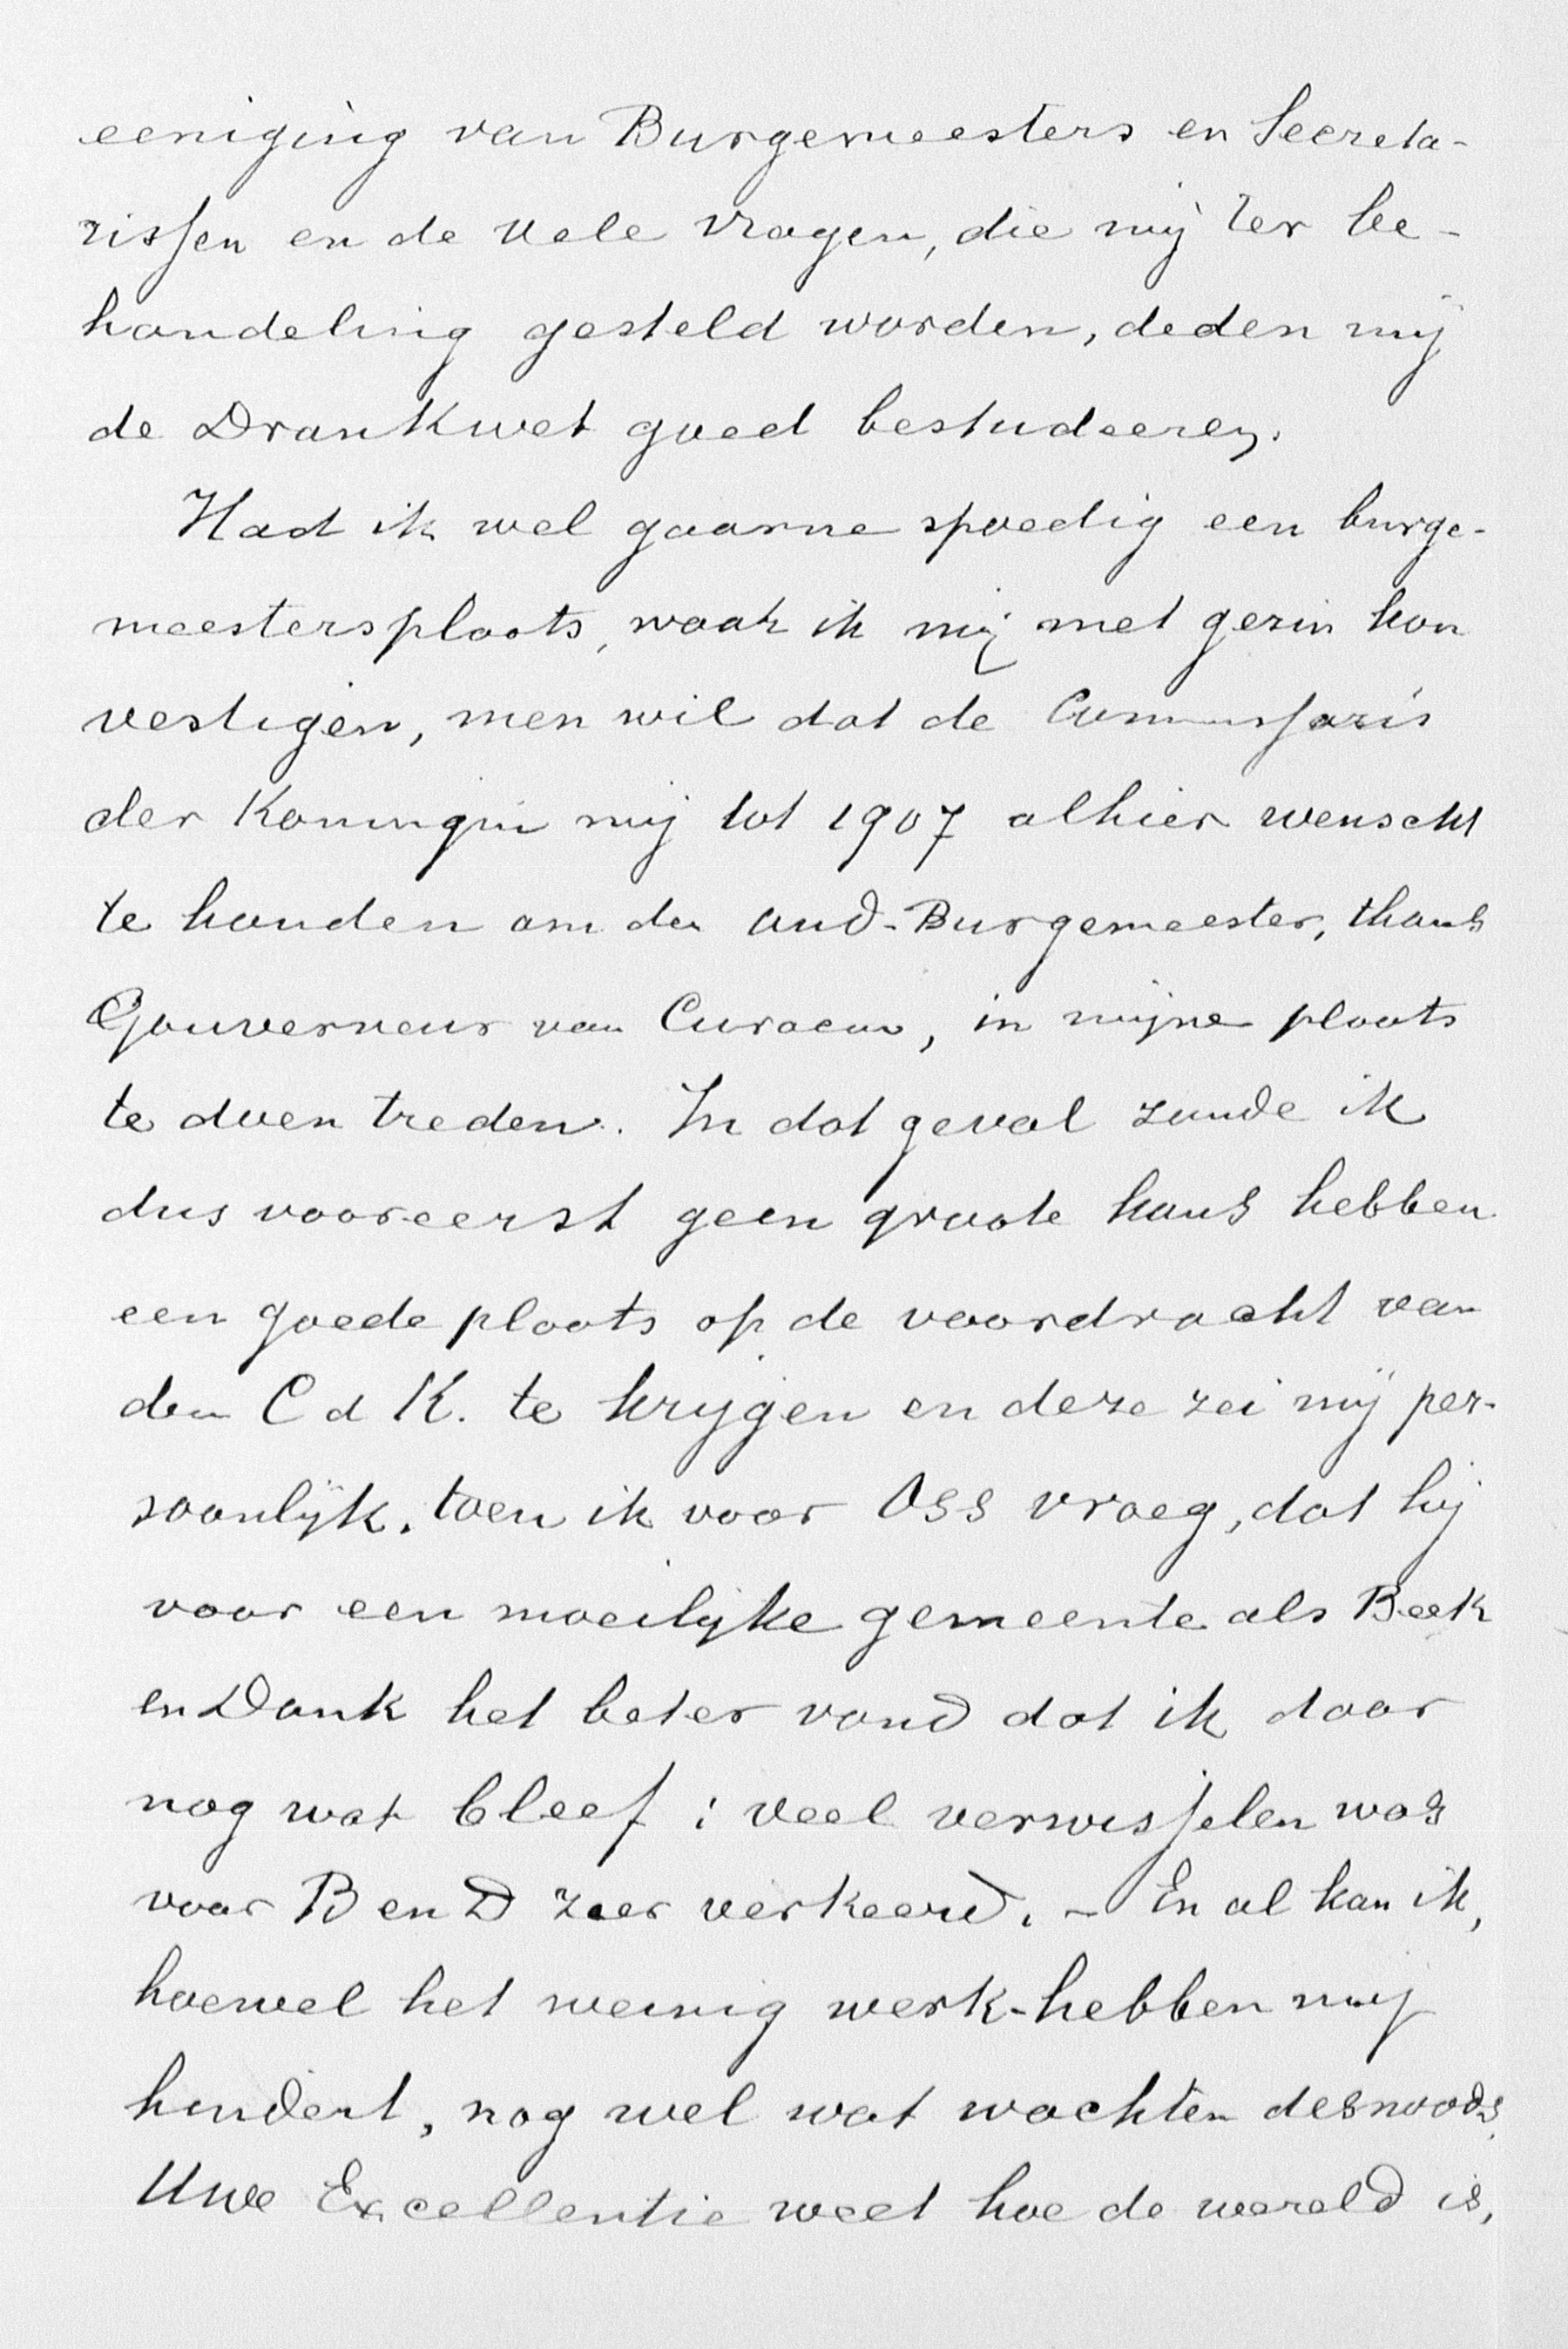 eeniging van Burgemeesters en Secreta-
rissen en de vele vragen, die mij ter be-
handeling gesteld worden, deden mij
de Drankwet goed bestudeeren.
Had ik wel gaarne spoedig een burge-
meestersplaats, waar ik mij met gezin kon
vestigen, men wil dat de Commissaris
der Koningin mij tot 1907 alhier wenscht
te houden om den oud-Burgemeester, thans
Gouverneur van Curacau, in mijne plaats
te doen treden. In dat geval zoude ik
dus vooreerst geen groote kans hebben
een goede plaats op de voordracht van
den C d K. te krijgen en deze zei mij per-
soonlijk, toen ik voor Oss vroeg, dat hij
voor een moeilijke gemeente als Beek
en Donk het beter vond dat ik daar
nog wat bleef: veel verwisselen was
voor B en D zeer verkeerd. - En al kan ik,
hoewel het weinig werk-hebben mij
hindert, nog wel wat wachten desnoods,
Uwe Excellentie weet hoe de wereld is,